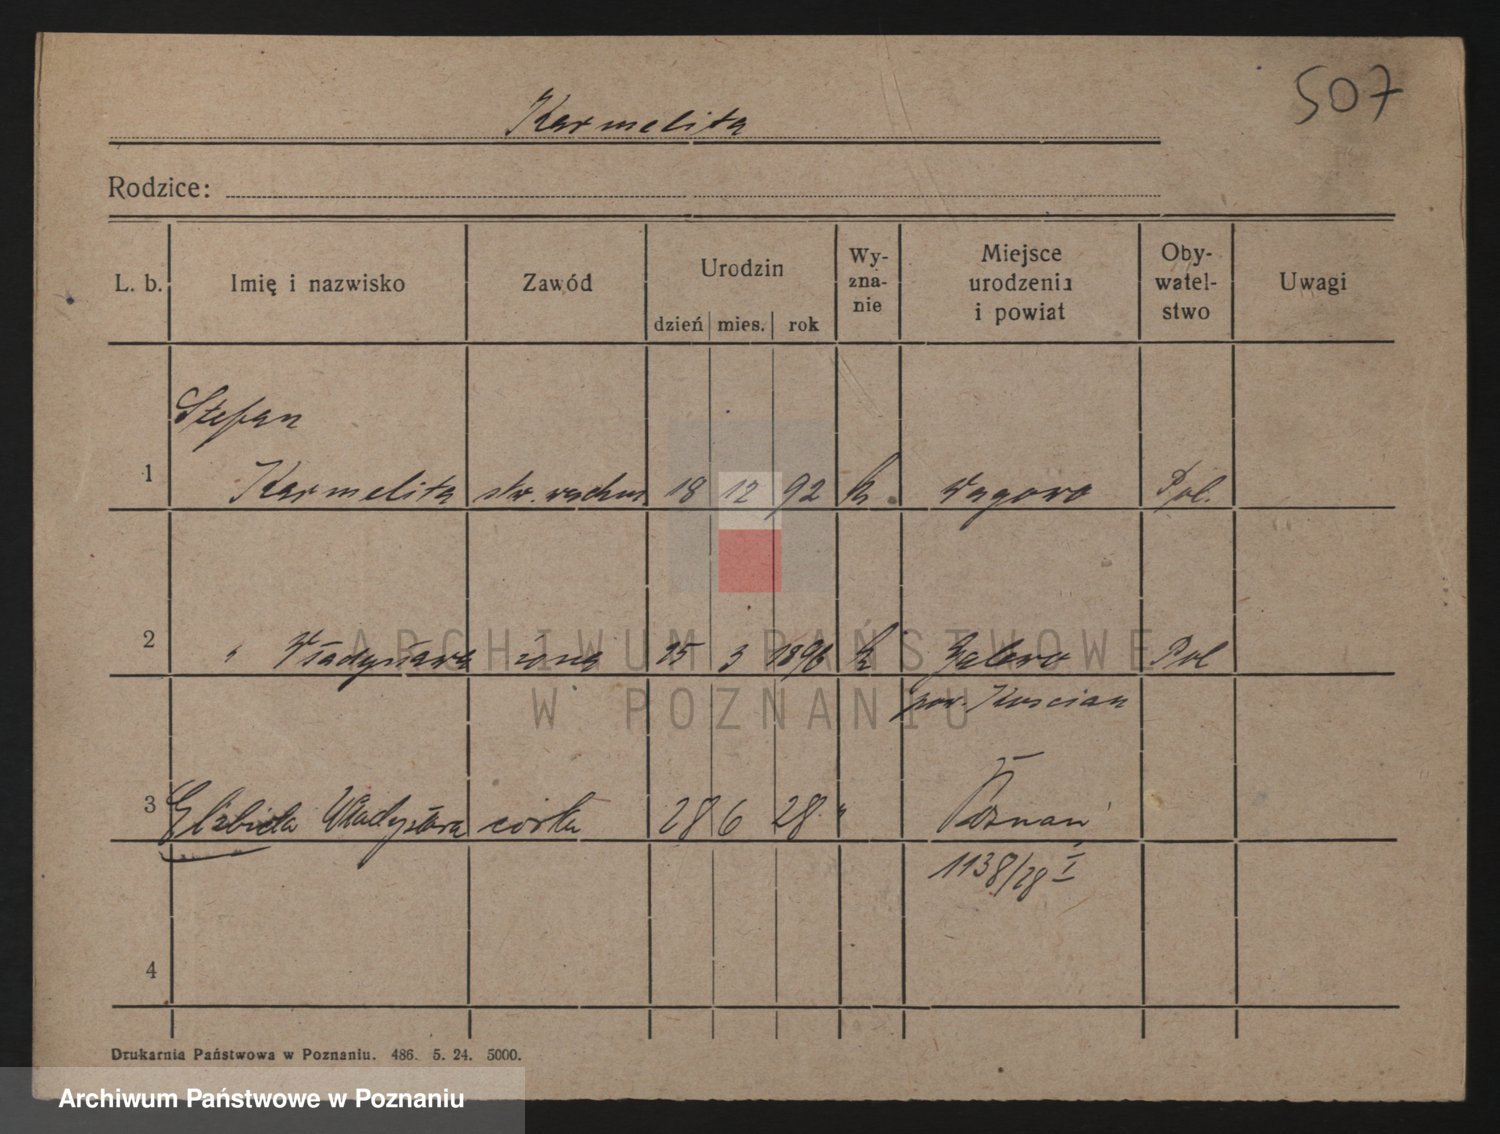 507
Karmelita
Rodzice:
L. b. Imię i nazwisko Zawód Urodzin dzień mies. rok Wy-zna-nie Miejsce urodzenia i powiat Oby-watel-stwo Uwagi
Stefan
1 Karmelita 18 12 92 k Pol.
2 " Władysława żona 25 3 1896 k Pol
pow. Kościan
3 Elżbieta Władysława córka 28 6 28 " Poznań
1138/28 I
4
Drukarnia Państwowa w Poznaniu. 486. 5. 24. 5000.
ARCHIWUM PAŃSTWOWE
W POZNANIU
Archiwum Państwowe w Poznaniu